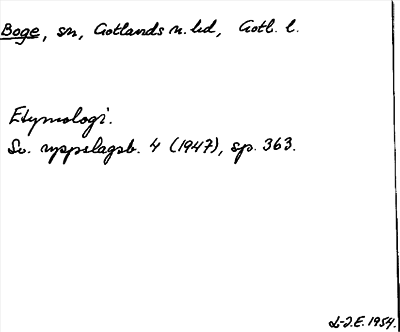 Boge, sn, Gotlands n. hd, Gotl. l.
Etymologi.
Sv. uppslagsb. 4 (1947), sp. 363.
L-J.E. 1954.